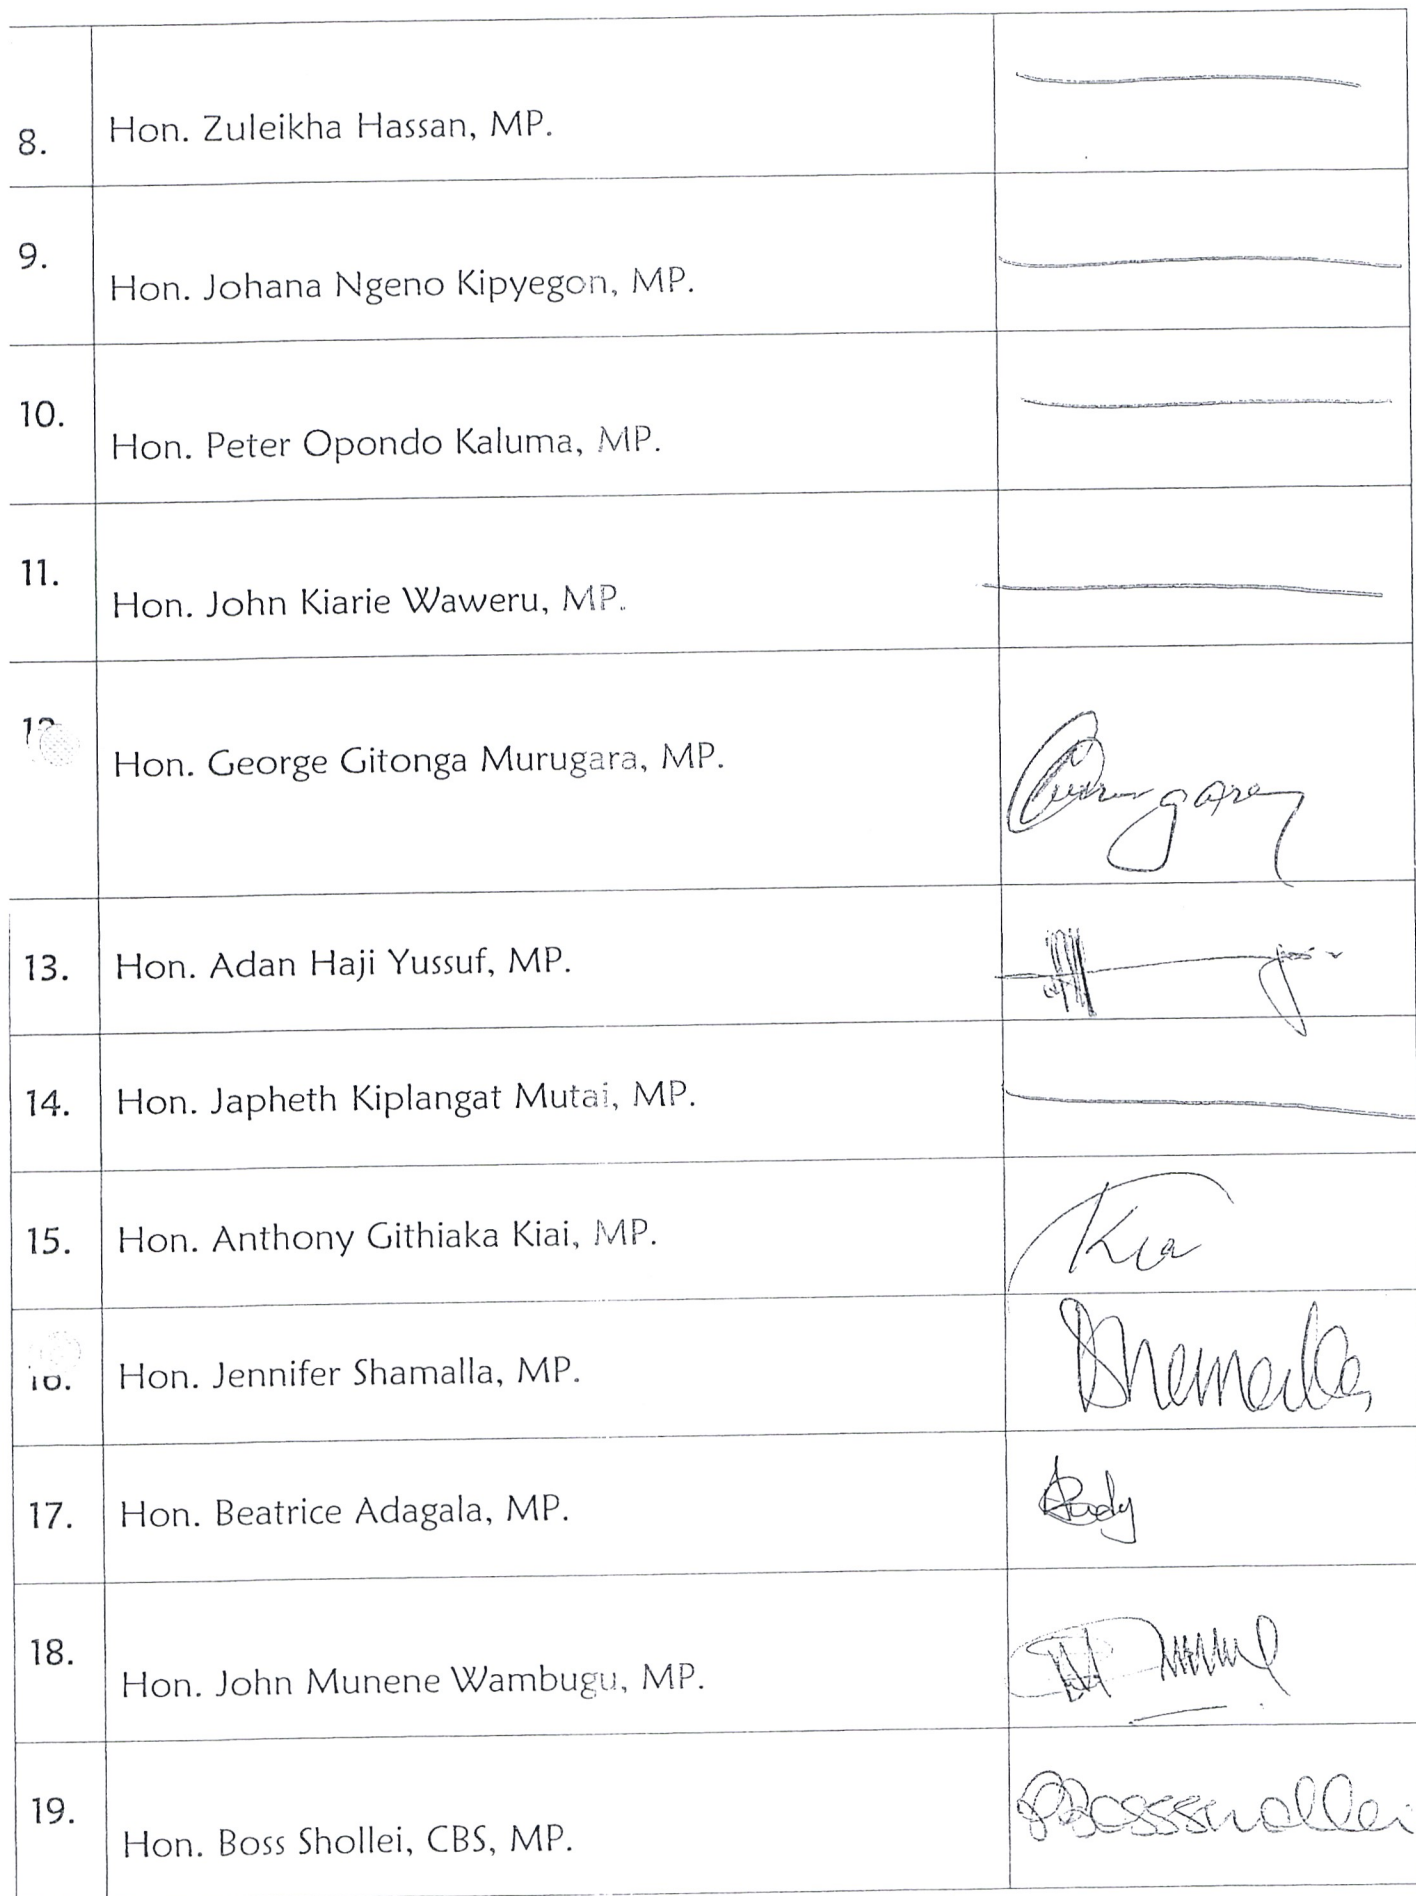 8. Hon. Zuleikha Hassan, MP.
9. Hon. Johana Ngeno Kipyegon, MP.
10. Hon. Peter Opondo Kaluma, MP.
11. Hon. John Kiarie Waweru, MP.
12. Hon. George Gitonga Murugara, MP.
13. Hon. Adan Haji Yussuf, MP.
14. Hon. Japheth Kiplangat Mutai, MP.
15. Hon. Anthony Githiaka Kiai, MP.
16. Hon. Jennifer Shamalla, MP.
17. Hon. Beatrice Adagala, MP.
18. Hon. John Munene Wambugu, MP.
19. Hon. Boss Shollei, CBS, MP.